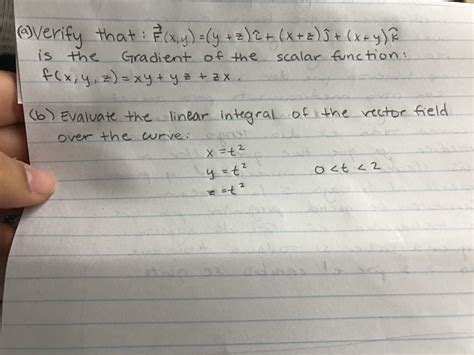 (a) Verify that : F⃗(x,y) = (y + z)î + (x+z)ĵ + (x+y)k̂
is the Gradient of the scalar function:
f(x, y, z) = xy + yz + zx.
(b) Evaluate the linear integral of the vector field
over the curve:
x = t²
y = t² 0 < t < 2
z = t²